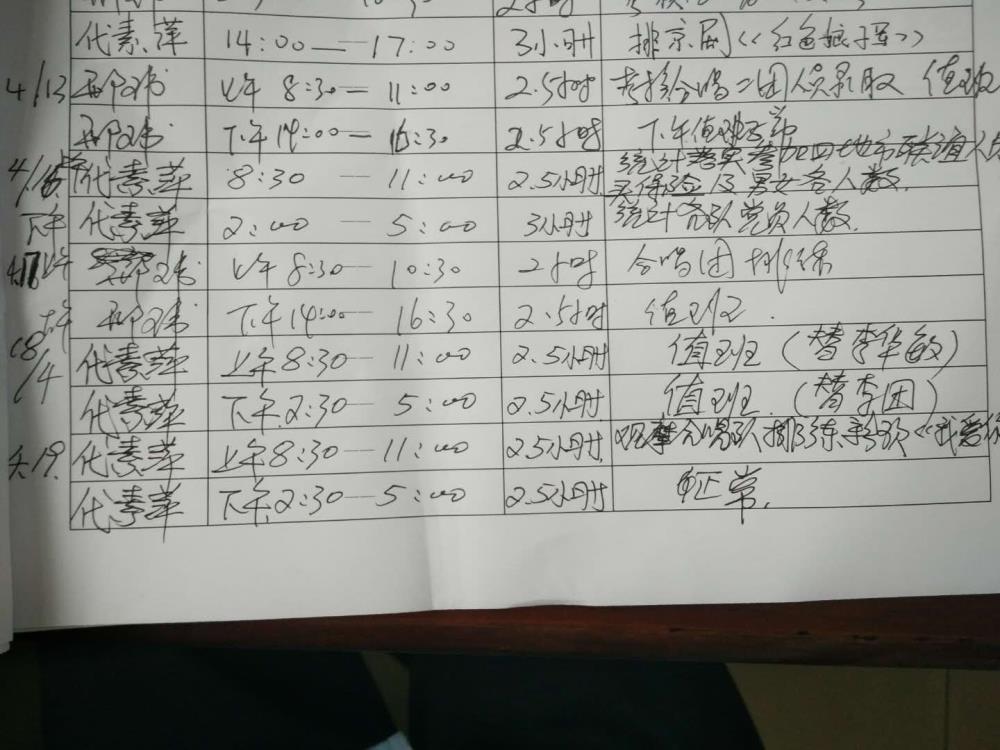 2小时
代素萍 14:00—17:00 3小时 排京剧《红色娘子军》
4/13 上午 8:30—11:00 2.5小时 考核合唱二团人员录取 值班
下午14:00—16:30 2.5小时 下午值班正常
代素萍 8:30—11:00 2.5小时 统计落实参加四地市联谊人员
买保险及男女各人数.
下午 代素萍 2:00 5:00 3小时 统计各队党员人数.
4.17 上午 上午 8:30—10:30 2小时 合唱团排练
下午 下午14:00—16:30 2.5小时 值班.
18/4 代素萍 上午8:30—11:00 2.5小时 值班(替李华敏)
代素萍 下午.2:30—5:00 2.5小时 值班.(替李团)
4.19. 代素萍 上午8:30—11:00 2.5小时. 观摩合唱队排练《我爱你
代素萍 下午.2:30—5:00 2.5小时 正常.